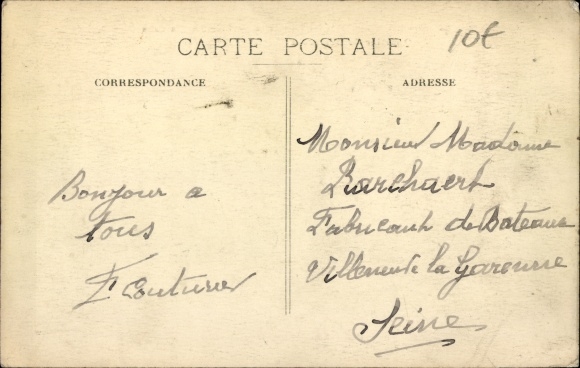 10€
CARTE POSTALE
CORRESPONDANCE
ADRESSE
Bonjour a
tous
Couturier
Monsieur Madame
Fabricant de Bateaux
Villeneuve la Garenne
Seine